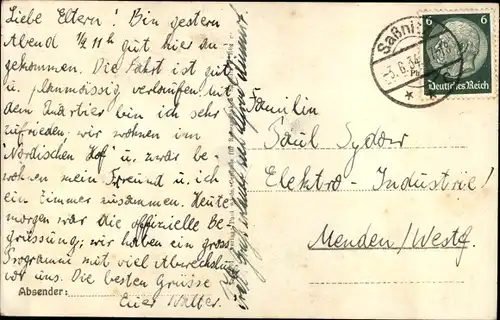 Liebe Eltern! Bin gestern
Abend ½ 11 h gut hier an-
gekommen. Die Fahrt ist gut
u. planmässig verlaufen. Mit
dem Quartier bin ich sehr
zufrieden; wir wohnen im
"Nordischen Hof" u. zwar be-
wohnen mein Freund u. ich
ein Zimmer zusammen. Heute
morgen war die offizielle Be-
grüssung; wir haben ein gross.
Programm mit viel Abwechslung
vor uns. Die besten Grüsse
Euer Walter.
Absender:
Saßnitz
6.34
6 6
Deutsches Reich
Familie
Paul Sydow
Elektro-Industrie!
Menden/Westf.